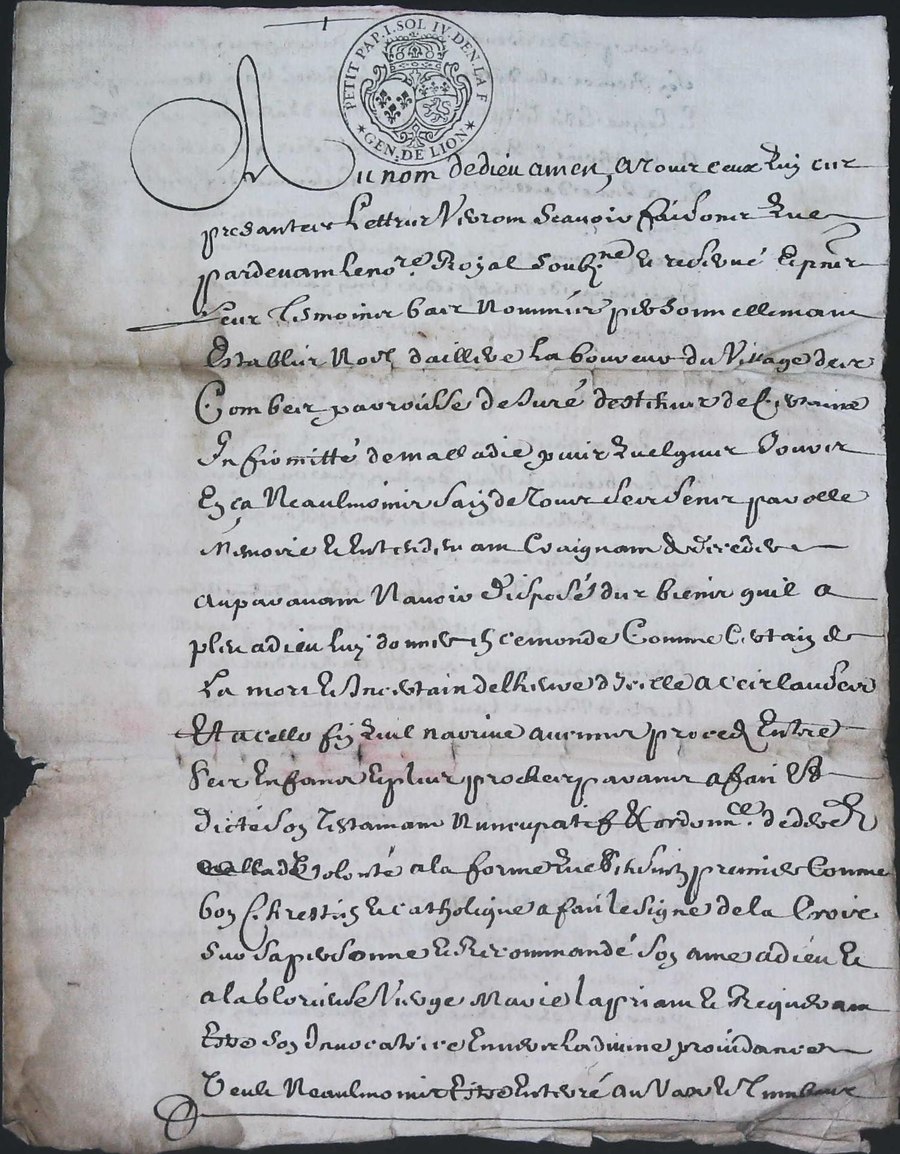 PETIT PAP. I. SOL IV. DEN. LA F
GEN. DE LION
Au nom de dieu amen, a tous ceux quy ces
presantes lettres verront scavoir faisons que
pardevant le no.re Royal soubz.né et reservé et pnts
leur tesmoins bas nommés personnellemant
Establis Noel dallere laboureur du village des
Combes parroisse de Juré destenus de certaine
Infirmitté de malladie puis quelques jours
En ça Neaulmoins sain de tous ses sens parolle
Memoire et Entendemant Craignant de deceder
auparavant Navoir disposés des biens quil a
pleu a dieu luy donner en ce monde Comme Certain de
La mort et Incertain de lheure dicelle a ces causes
Et a celle fin quil narrive aucuns proced Entre
ses Enfans et plus proches parans a fait et
dicté son testamant Nuncupatif et ordonn.ce de
volonté a la forme que sensuit premier Comme
bon Chrestien et catholique a fait le signe de la Croix
sur sa personne et Recommandé son ame a dieu et
a la glorieuse Vierge Marie la priant et Requerant
Estre son Invocatrice Envers la divine providance
Veult Neaulmoins Estre Enterré au Vas et Tumbeau